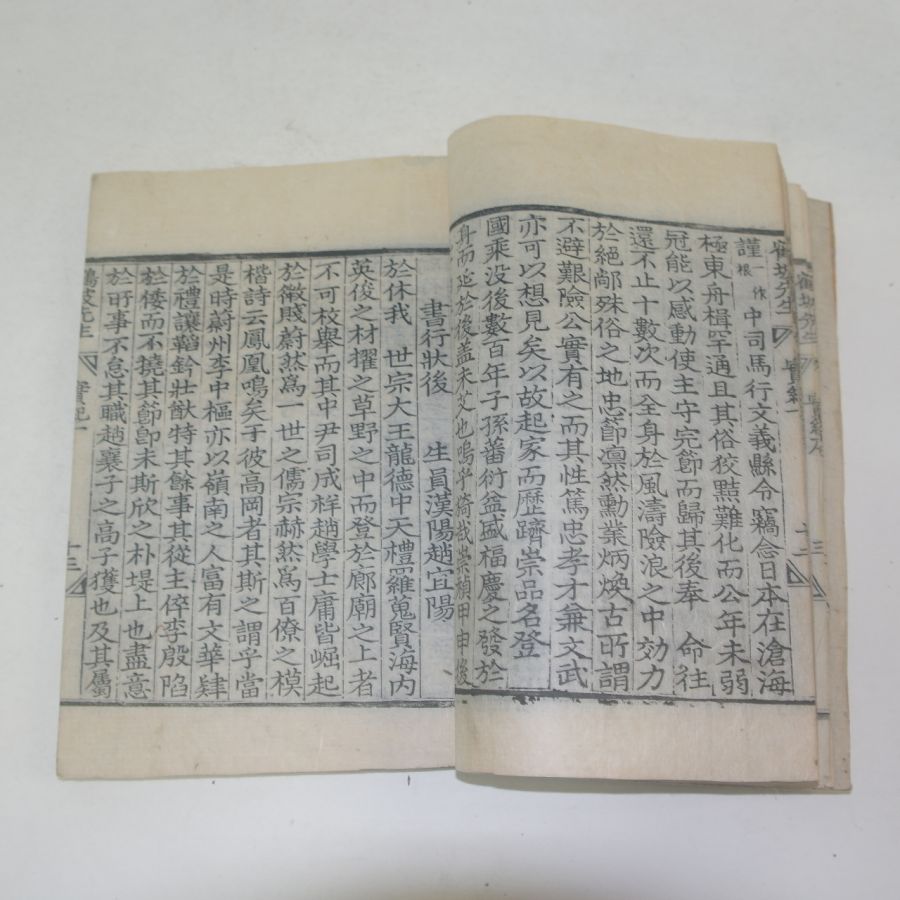 謹一作根中司馬行文義縣令竊念日本在滄海
極東舟楫罕通且其俗狡黠難化而公年未弱
冠能以感動使主守完節而歸其後奉 命往
還不止十數次而全身於風濤險浪之中効力
於絕鄙殊俗之地忠節凛然勳業炳煥古所謂
不避艱險公實有之而其性篤忠孝才兼文武
亦可以想見矣以故起家而歷躋崇品名登
國乘没後數百年子孫蕃衍益盛福慶之發於
身而延於後盖未艾也嗚乎猗哉崇禎甲申後
書行狀後 生員漢陽趙宜陽
於休我 世宗大王龍德中天禮羅蒐賢海内
英俊之材擢之草野之中而登於廊廟之上者
不可枚舉而其中尹司成祥趙學士庸皆崛起
於微賤蔚然爲一世之儒宗赫然爲百僚之模
楷詩云鳳凰鳴矣于彼高岡者其斯之謂乎當
是時蔚州李中樞亦以嶺南之人富有文華肄
於禮讓韜鈐壯猷特其餘事其從主倅李殷陷
於倭而不撓其節卽未斯欣之朴堤上也盡意
於所事不怠其職趙襄子之高子獲也及其屬
鶴坡先生 實紀一 十三